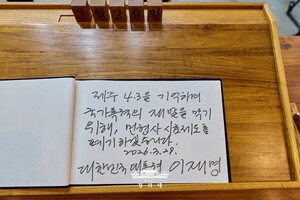 제주 4.3을 기억하며
국가폭력의 재발을 막기
위해, 민형사 시효제도를
폐기하겠습니다.
2026.3.29.
대한민국 대통령 이재명
청와대